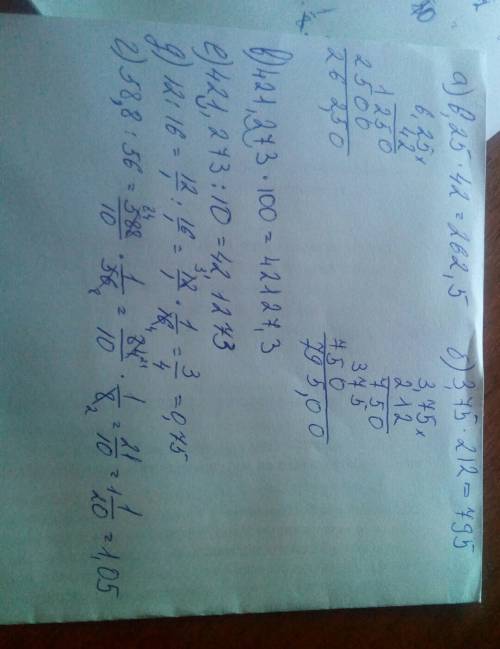 а) 6,25 · 42 = 262,5
6,25 ×
42
1250
2500
26 2,50
б) 3,75 · 212 = 795
3,75 ×
212
750
375
750
795,00
в) 421,273 · 100 = 42127,3
е) 421,273 : 10 = 42,1273
д) 12 : 16 = 12/1 : 16/1 = 12/1 · 1/16 = 3/4 = 0,75
г) 58,8 : 56 = 588/10 · 1/56 = 84/10 · 1/8 = 21/20 = 1 1/20 = 1,05